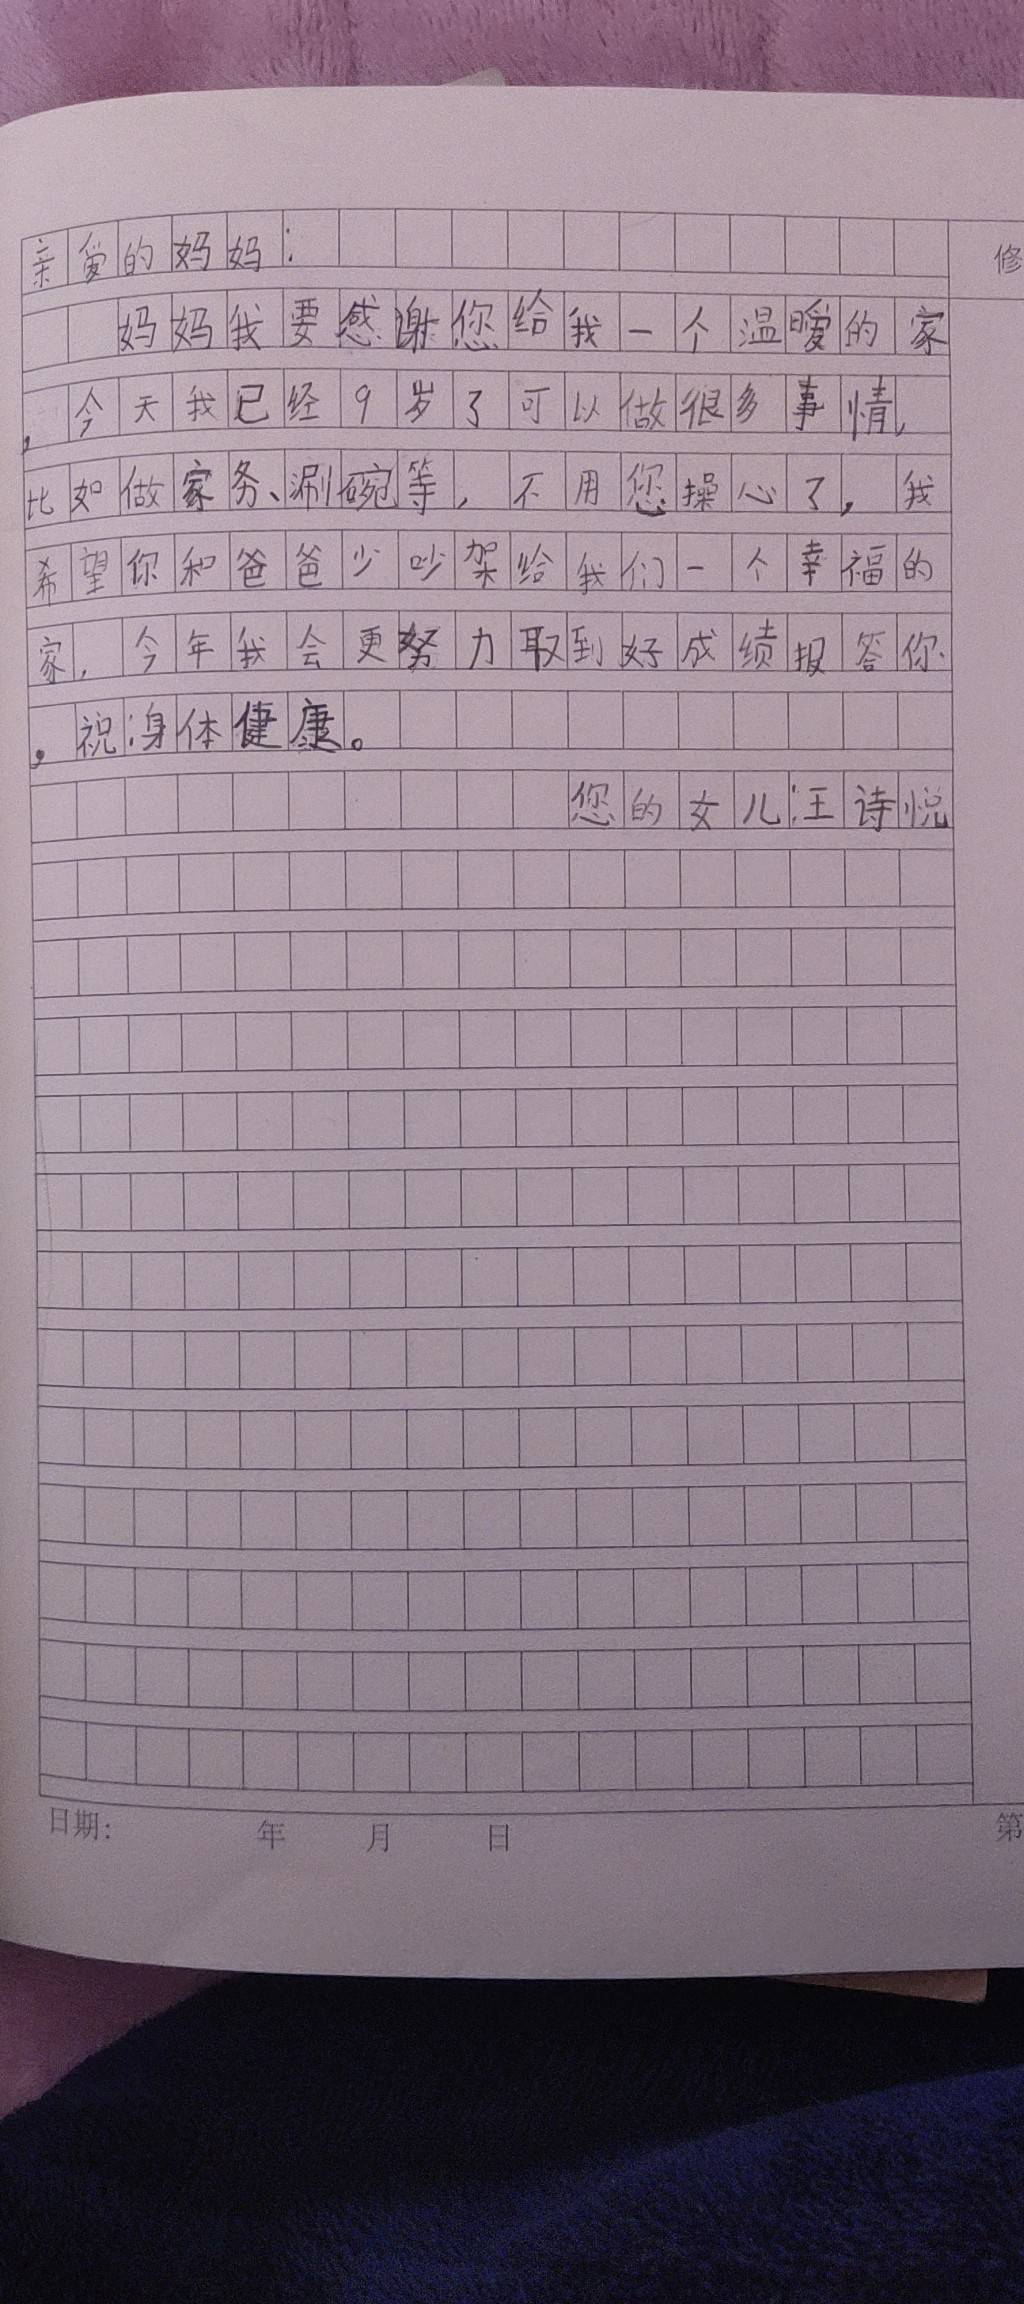 亲爱的妈妈:
修
妈妈我要感谢您给我一个温暖的家
,今天我已经9岁了可以做很多事情,
比如做家务、涮碗等,不用您操心了,我
希望你和爸爸少吵架给我们一个幸福的
家,今年我会更努力取到好成绩报答你
。祝:身体健康。
您的女儿:王诗悦
日期: 年 月 日
第